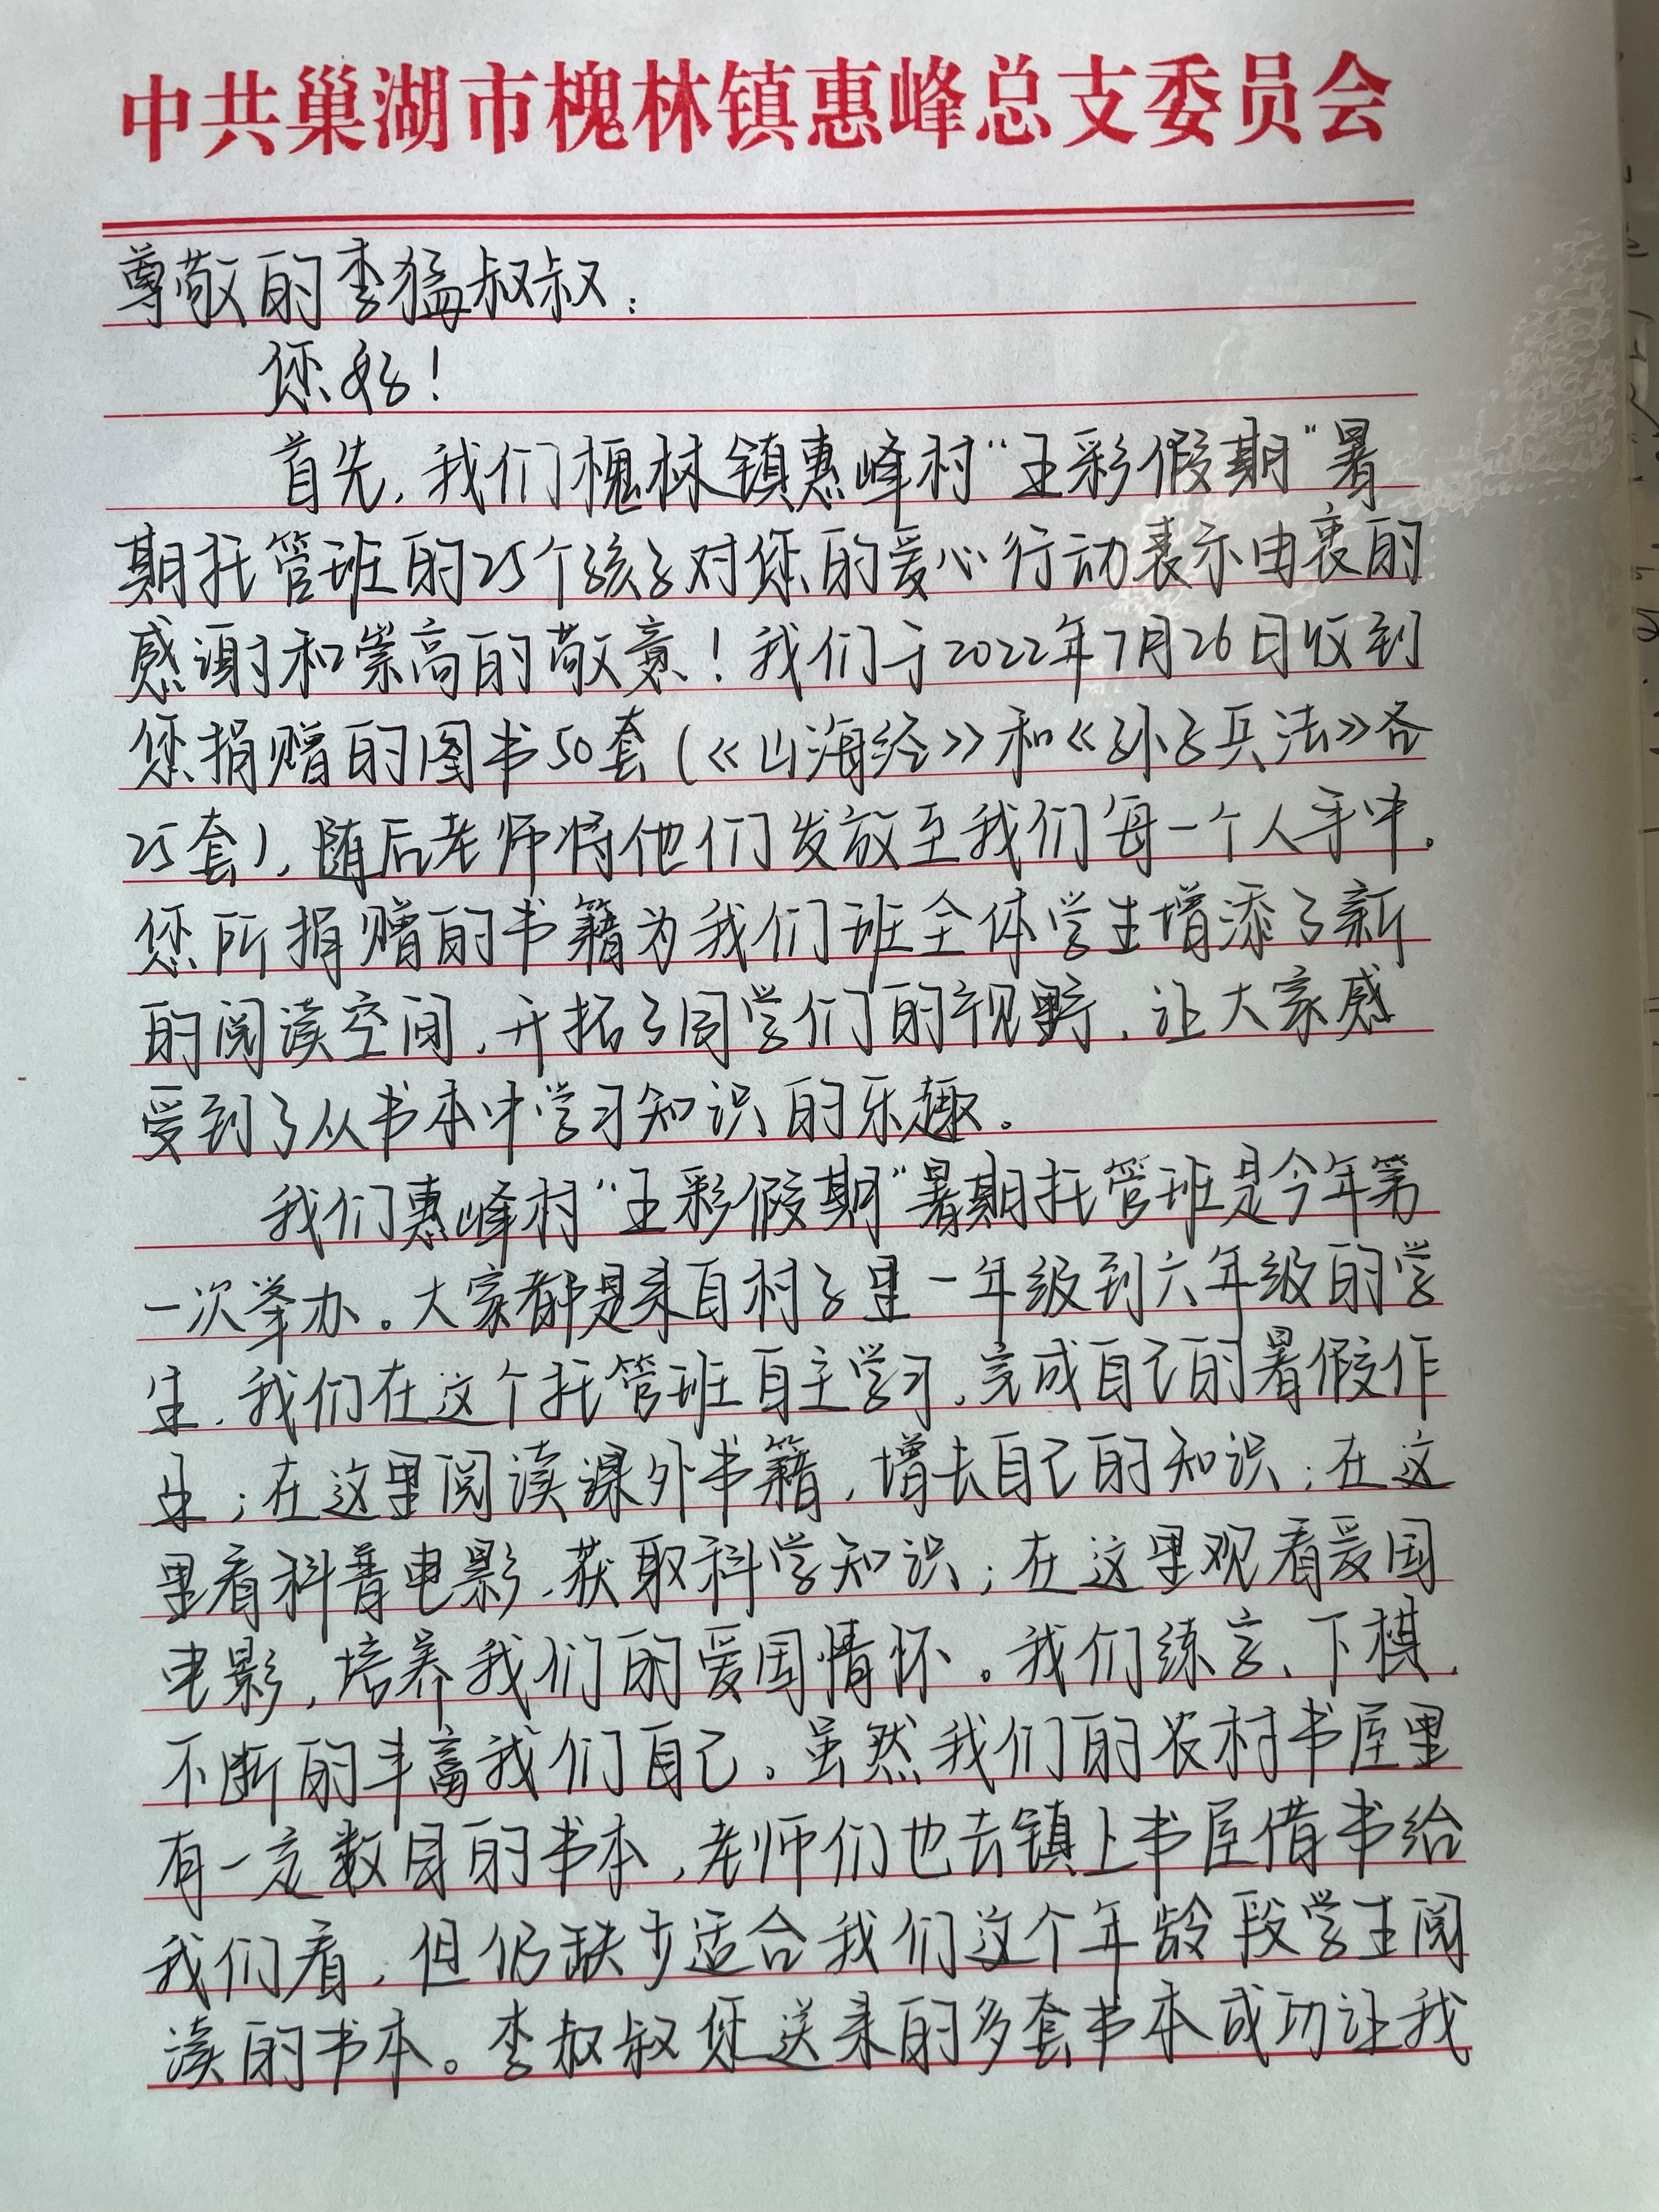 中共巢湖市槐林镇惠峰总支委员会
尊敬的李猛叔叔：
您好！
首先，我们槐林镇惠峰村“王彩假期”暑
期托管班的25个孩子对您的爱心行动表示由衷的
感谢和崇高的敬意！我们于2022年7月26日收到
您捐赠的图书50套（《山海经》和《孙子兵法》各
25套），随后老师将他们发放至我们每一个人手中。
您所捐赠的书籍为我们班全体学生增添了新
的阅读空间，开拓了同学们的视野，让大家感
受到了从书本中学习知识的乐趣。
我们惠峰村“王彩假期”暑期托管班是今年第
一次举办。大家都是来自村子里一年级到六年级的学
生，我们在这个托管班自主学习，完成自己的暑假作
业；在这里阅读课外书籍，增长自己的知识；在这
里看科普电影，获取科学知识；在这里观看爱国
电影，培养我们的爱国情怀。我们练字、下棋，
不断的丰富我们自己。虽然我们的农村书屋里
有一定数目的书本，老师们也去镇上书屋借书给
我们看，但仍缺少适合我们这个年龄段学生阅
读的书本。李叔叔您送来的多套书本成功让我